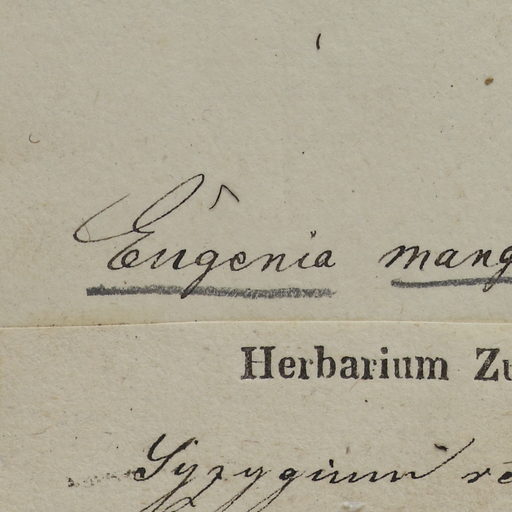 Eugenia mang
Herbarium Zu
Syzygium re